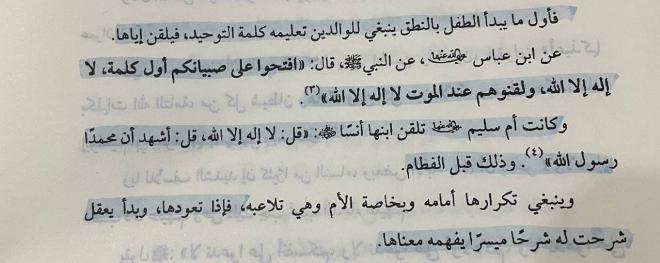 فأول ما يبدأ الطفل بالنطق ينبغي للوالدين تعليمه كلمة التوحيد، فيلقن إياها.
عن ابن عباس رضي الله عنهما، عن النبي ﷺ، قال: «افتحوا على صبيانكم أول كلمة، لا
إله إلا الله، ولقنوهم عند الموت لا إله إلا الله»(٣).
وكانت أم سليم رضي الله عنها تلقن ابنها أنسًا رضي الله عنه: «قل: لا إله إلا الله، قل: أشهد أن محمدًا
رسول الله»(٤). وذلك قبل الفطام.
وينبغي تكرارها أمامه وبخاصة الأم وهي تلاعبه، فإذا تعودها، وبدأ يعقل
شرحت له شرحًا ميسرًا يفهمه معناها.